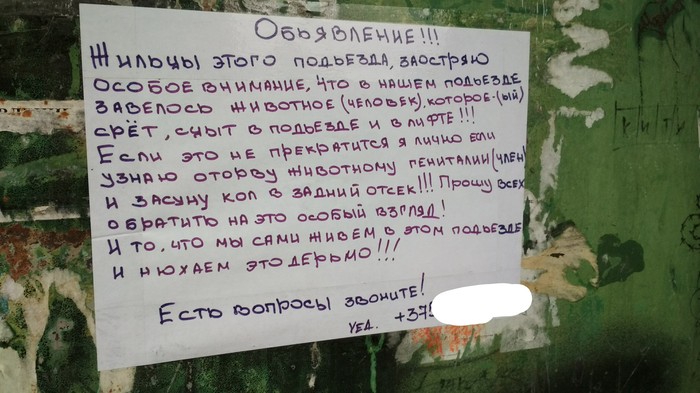 Обьявление!!!
Жильцы этого подьезда, заостряю
особое внимание, что в нашем подьезде
завелось животное (человек), которое-(ый)
срёт, сыт в подьезде и в лифте!!!
Если это не прекратится я лично если
узнаю оторву животному гениталии (член)
и засуну кол в задний отсек!!! Прошу всех
обратить на это особый взгляд!
И то, что мы сами живем в этом подьезде
и нюхаем это дерьмо!!!
Есть вопросы звоните!
+375